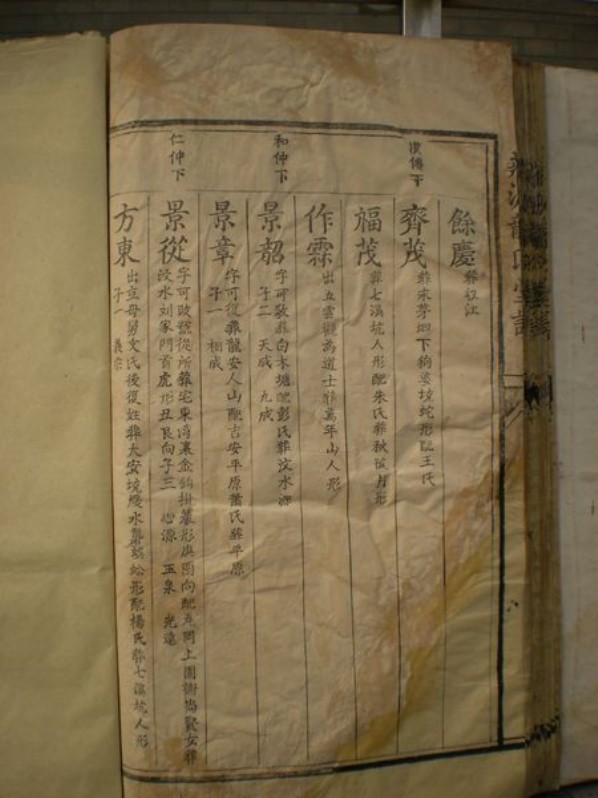 餘慶 葬江江
漢傅下
齊茂 葬末茅坳下狗婆坡蛇形配王氏
福茂 葬七溪坑人形配朱氏葬秋坡月形
作霖 出五雲觀為道士葬萬年山人形
和仲下
景韶 字可敬葬白木塘配彭氏葬汶水源
子二 天成 九成
景章 字可復葬龍安人山配吉安平原蕭氏葬平原
子一 相成
仁仲下
景從 字可 從所葬宅東 金鈎掛 形庚 向配 岡上園謝 賢女葬
汶水刘家門首虎形丑艮向子三 源 玉泉 光遠
方東 出立母舅文氏後復姓葬大安坡 水 蜈蚣形配楊氏葬七溪坑人形
子一 義宗